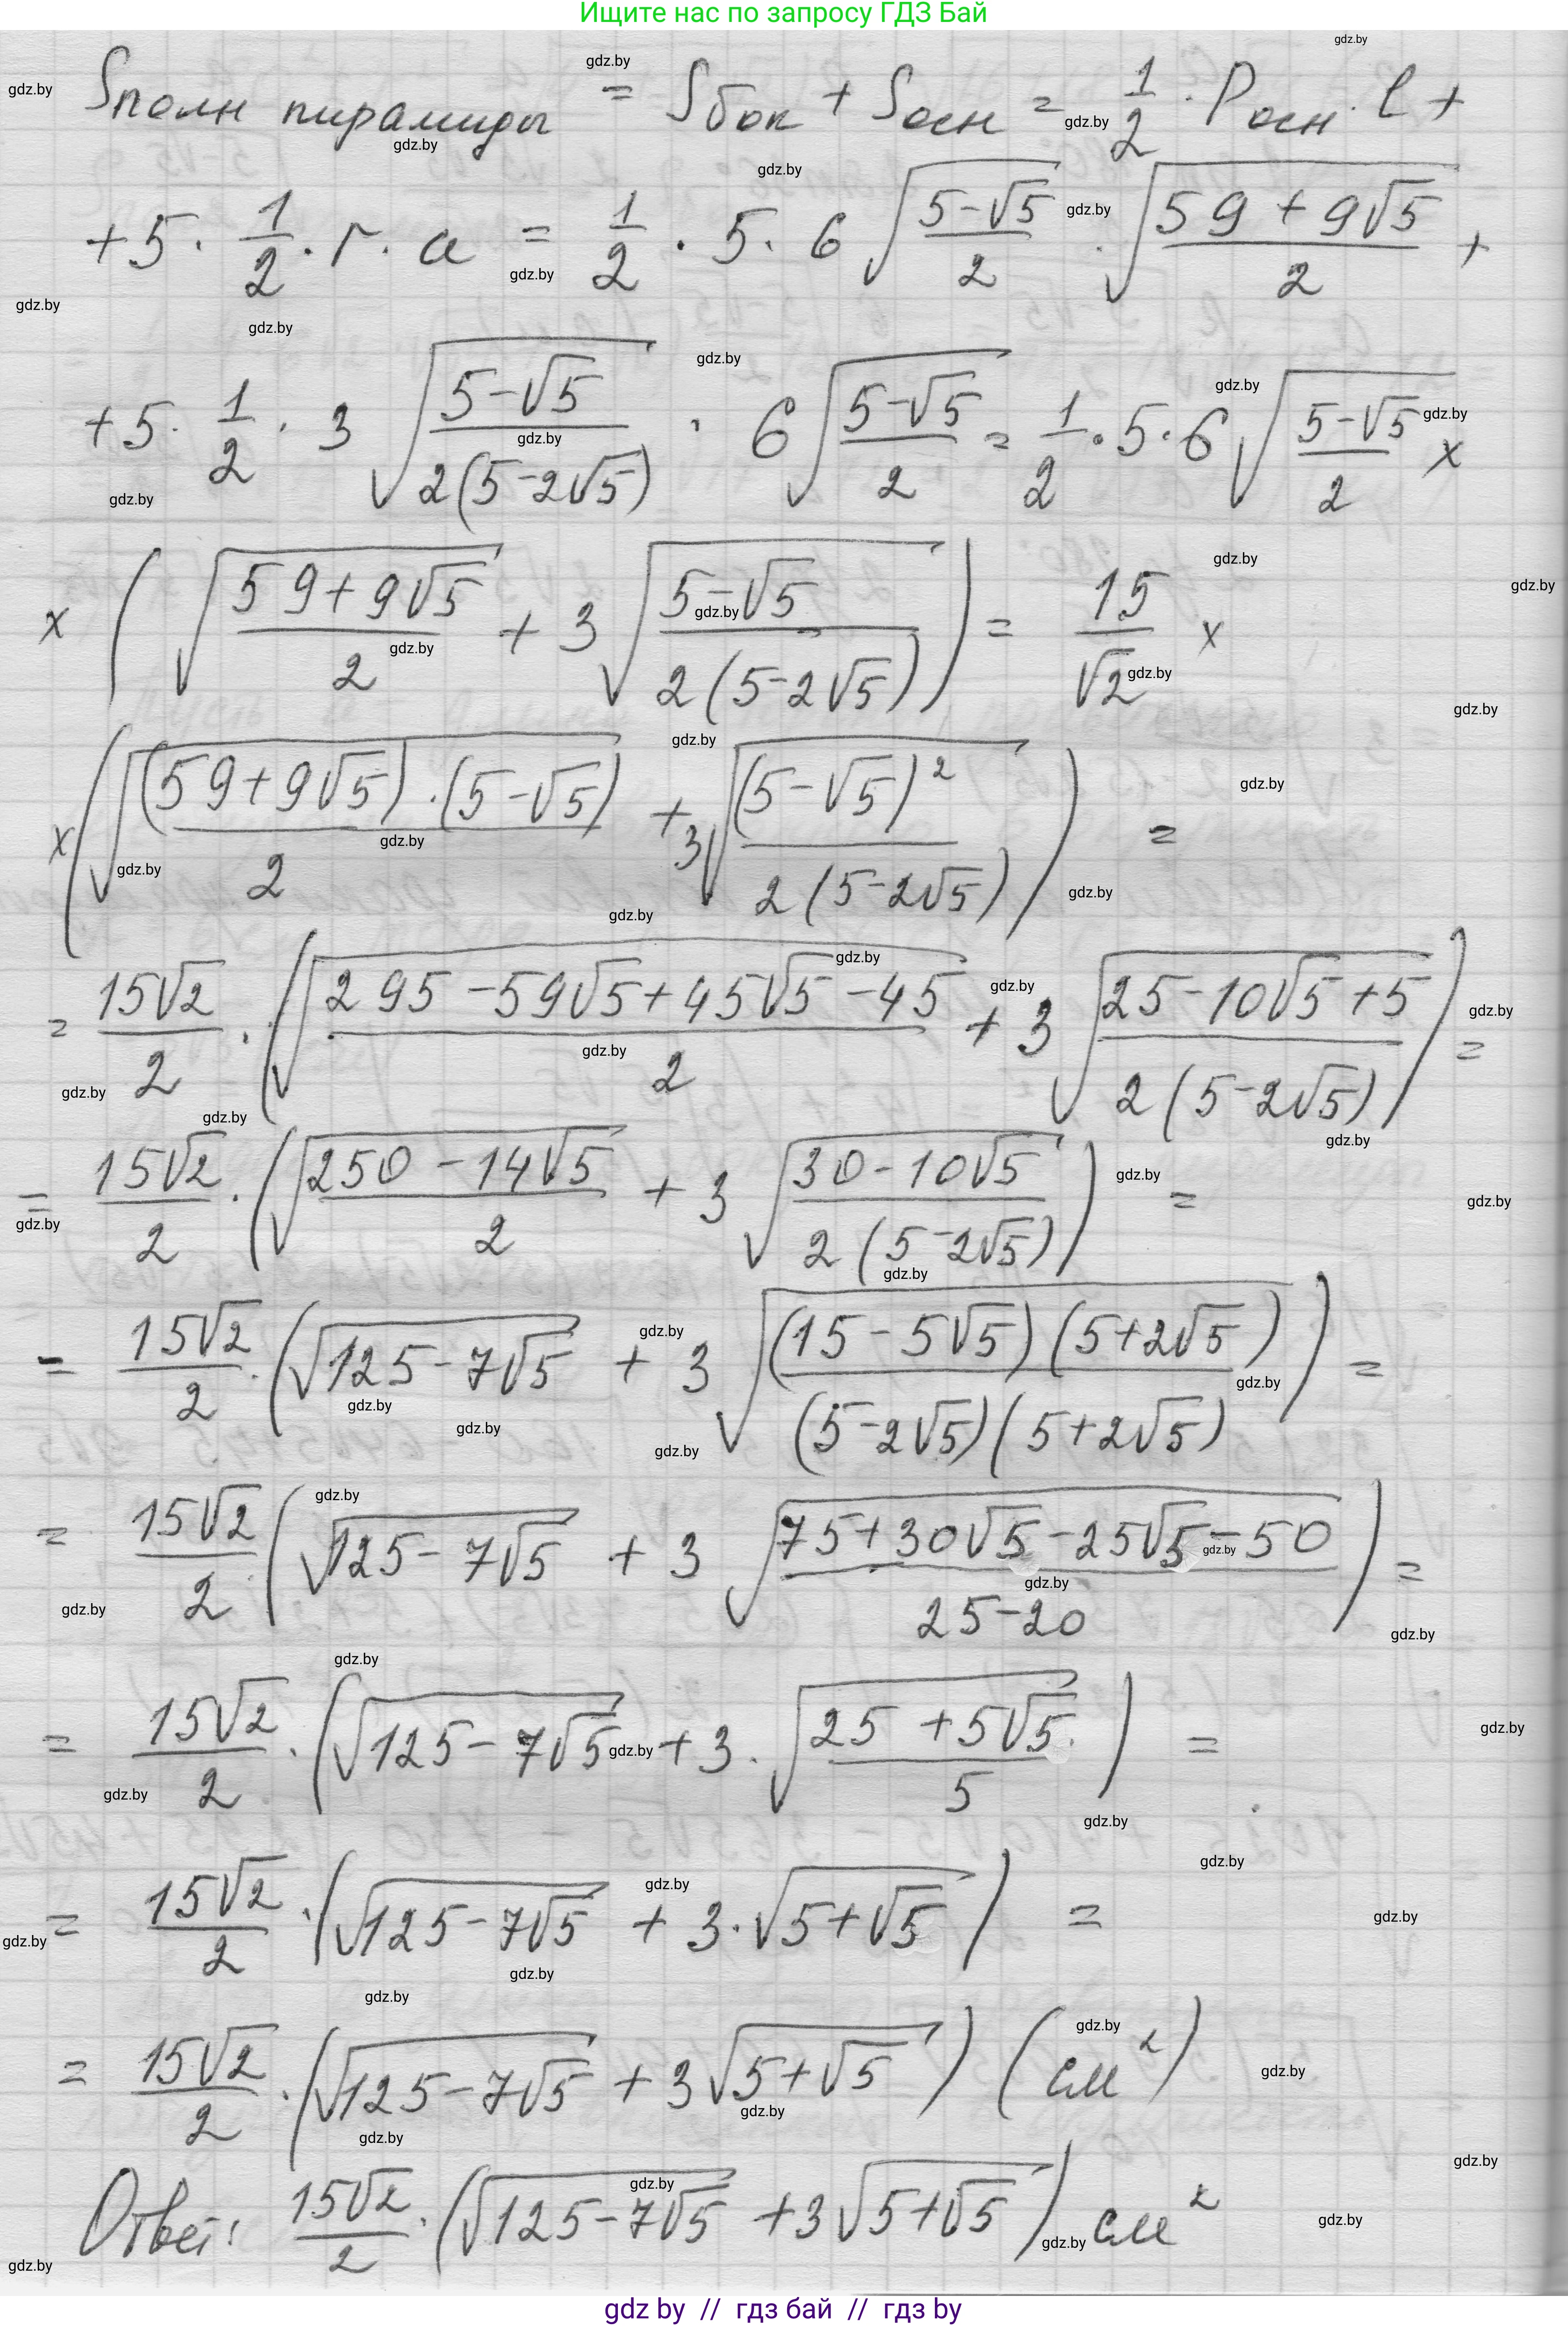 Ищите нас по запросу ГДЗ Бай
Sполн пирамиды = Sбок + Sосн = 1/2 · Pосн · l +
+ 5 · 1/2 · r · a = 1/2 · 5 · 6 √((5-√5)/2) · √((59+9√5)/2) +
+ 5 · 1/2 · 3 √((5-√5)/(2(5-2√5))) · 6 √((5-√5)/2) = 1/2 · 5 · 6 √((5-√5)/2) ×
× ( √((59+9√5)/2) + 3 √((5-√5)/(2(5-2√5))) ) = 15/√2 ×
× ( √(((59+9√5)·(5-√5))/2) + 3 √((5-√5)²/(2(5-2√5))) ) =
= 15√2/2 · ( √((295-59√5+45√5-45)/2) + 3 √((25-10√5+5)/(2(5-2√5))) ) =
= 15√2/2 · ( √((250-14√5)/2) + 3 √((30-10√5)/(2(5-2√5))) ) =
= 15√2/2 · ( √(125-7√5) + 3 √(((15-5√5)(5+2√5))/((5-2√5)(5+2√5))) ) =
= 15√2/2 ( √(125-7√5) + 3 √((75+30√5-25√5-50)/(25-20)) ) =
= 15√2/2 · ( √(125-7√5) + 3 · √((25+5√5)/5) ) =
= 15√2/2 · ( √(125-7√5) + 3 · √(5+√5) ) =
= 15√2/2 · ( √(125-7√5) + 3 √(5+√5) ) (см²)
Ответ: 15√2/2 · ( √(125-7√5) + 3 √(5+√5) ) см²
gdz by // гдз бай // гдз by